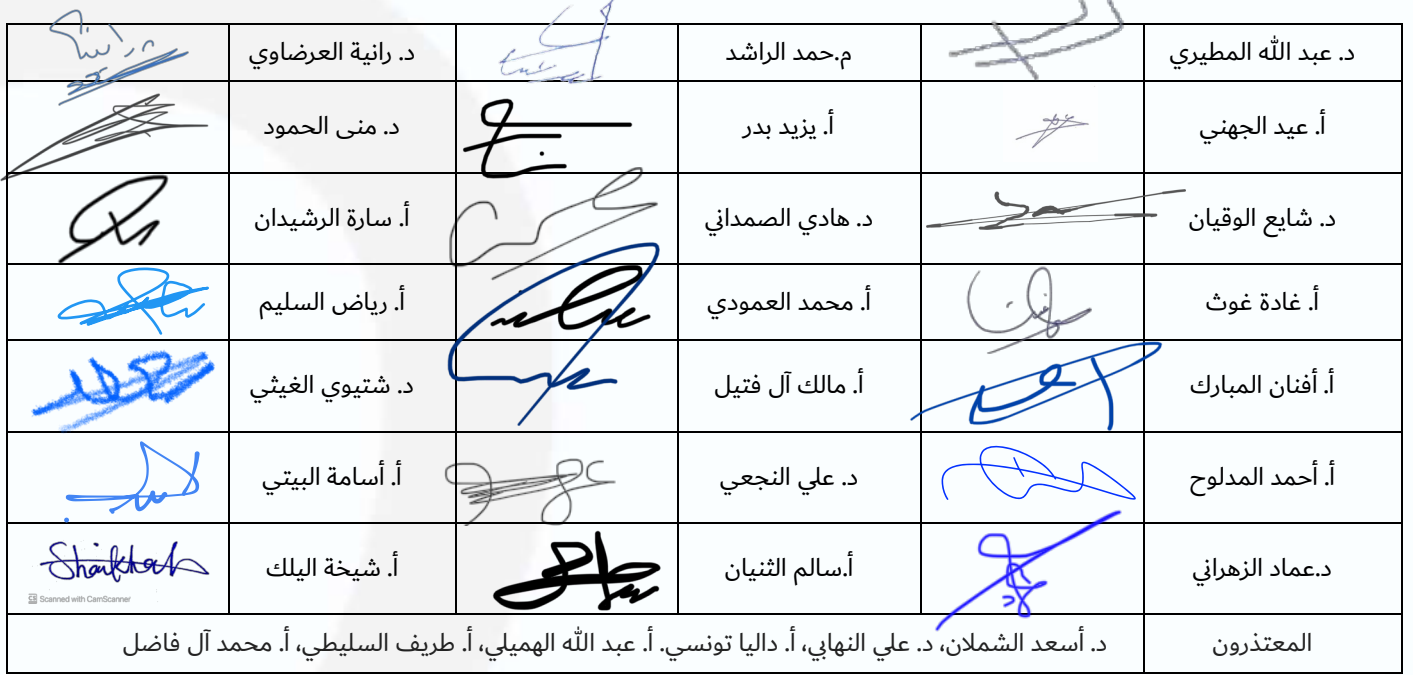 د. عبد الله المطيري م.حمد الراشد د. رانية العرضاوي
أ. عيد الجهني أ. يزيد بدر د. منى الحمود
د. شايع الوقيان د. هادي الصمداني أ. سارة الرشيدان
أ. غادة غوث أ. محمد العمودي أ. رياض السليم
أ. أفنان المبارك أ. مالك آل فتيل د. شتيوي الغيثي
أ. أحمد المدلوح د. علي النجعي أ. أسامة البيتي
د.عماد الزهراني أ.سالم الثنيان أ. شيخة اليلك Shaikhah
Scanned with CamScanner
المعتذرون د. أسعد الشملان، د. علي النهابي، أ. داليا تونسي. أ. عبد الله الهميلي، أ. طريف السليطي، أ. محمد آل فاضل